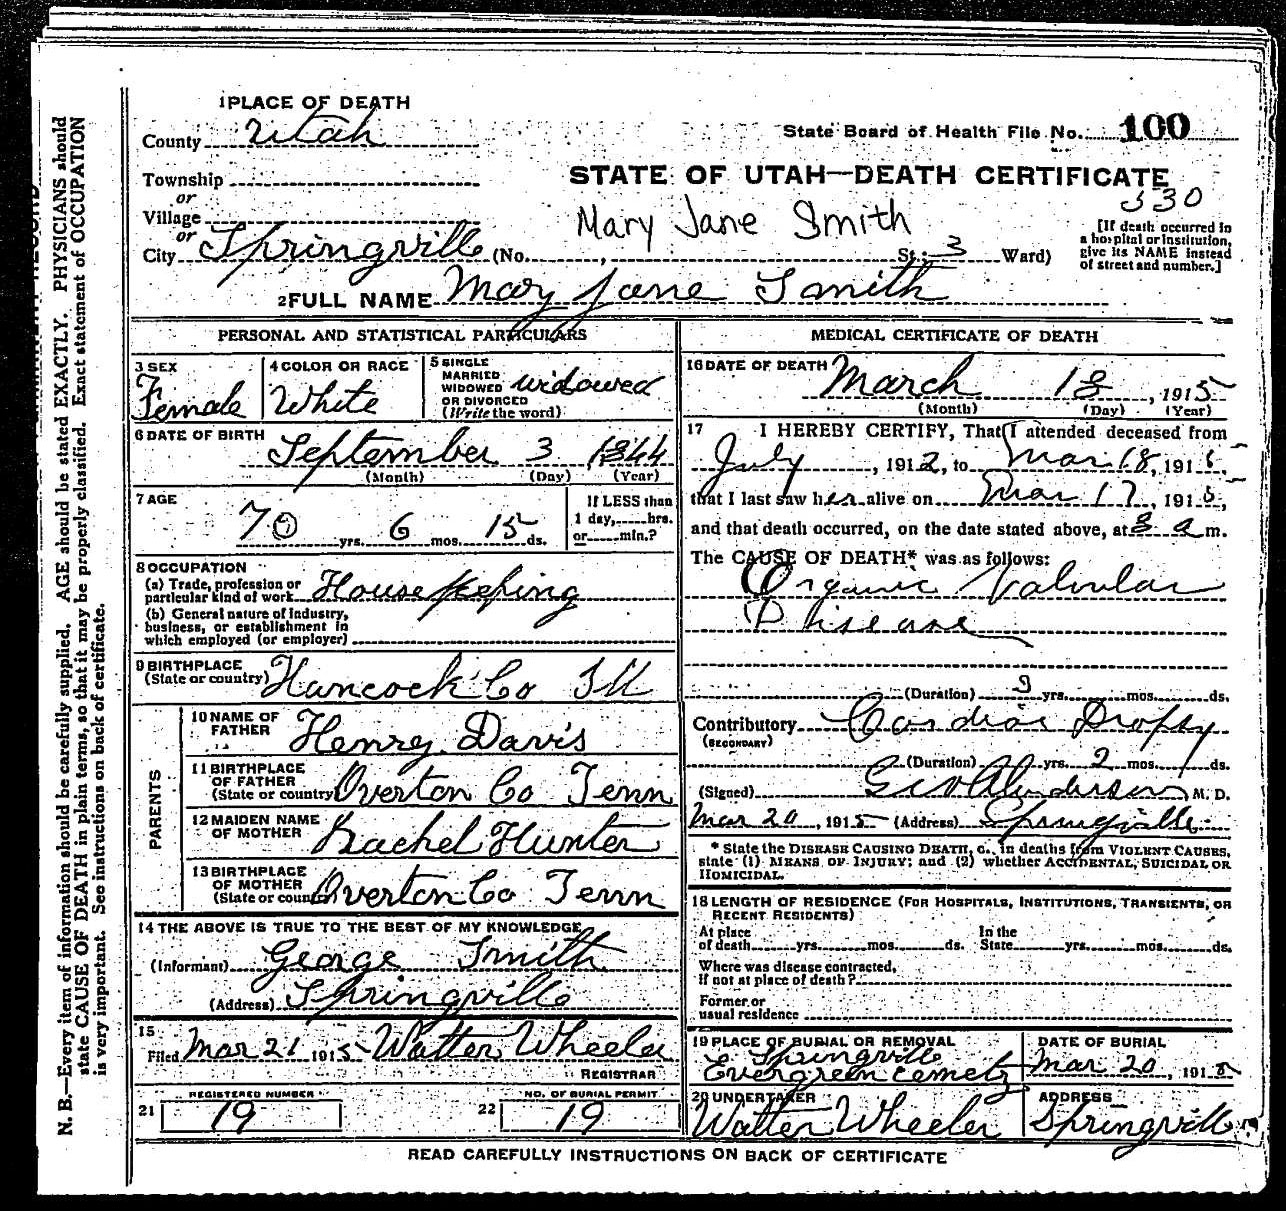 1 PLACE OF DEATH
County Utah
State Board of Health File No. 100
Township
or
Village
or
City Springville (No. , St.; 3 Ward)
STATE OF UTAH—DEATH CERTIFICATE
530
Mary Jane Smith
[If death occurred in a hospital or institution, give its NAME instead of street and number.]
2 FULL NAME Mary Jane Smith
PERSONAL AND STATISTICAL PARTICULARS
3 SEX
Female
4 COLOR OR RACE
White
5 SINGLE
MARRIED
WIDOWED
OR DIVORCED
(Write the word)
widowed
6 DATE OF BIRTH
September 3 1844
(Month) (Day) (Year)
7 AGE
70 yrs. 6 mos. 15 ds.
If LESS than
1 day, hrs.
or min.?
8 OCCUPATION
(a) Trade, profession or
particular kind of work House keeping
(b) General nature of industry,
business, or establishment in
which employed (or employer)
9 BIRTHPLACE
(State or country) Hancock Co Ill
PARENTS
10 NAME OF
FATHER Henry Davis
11 BIRTHPLACE
OF FATHER
(State or country Overton Co Tenn
12 MAIDEN NAME
OF MOTHER Rachel Hunter
13 BIRTHPLACE
OF MOTHER
(State or country Overton Co Tenn
14 THE ABOVE IS TRUE TO THE BEST OF MY KNOWLEDGE
(Informant) George Smith
(Address) Springville
15
Filed Mar 21 1915 Walter Wheeler
REGISTRAR
REGISTERED NUMBER
21 19
NO. OF BURIAL PERMIT
22 19
MEDICAL CERTIFICATE OF DEATH
16 DATE OF DEATH March 18, 1915
(Month) (Day) (Year)
17 I HEREBY CERTIFY, That I attended deceased from
July , 1912, to Mar 18, 1915,
that I last saw her alive on Mar 17, 1915,
and that death occurred, on the date stated above, at 3 a m.
The CAUSE OF DEATH* was as follows:
Organic Valvular
Disease
(Duration) 3 yrs. mos. ds.
Contributory Cardiac Dropsy
(SECONDARY)
(Duration) yrs. 2 mos. ds.
(Signed) Geo Anderson M. D.
Mar 20, 1915 (Address) Springville
* State the DISEASE CAUSING DEATH, o., in deaths from VIOLENT CAUSES,
state (1) MEANS OF INJURY; and (2) whether ACCIDENTAL, SUICIDAL OR
HOMICIDAL.
18 LENGTH OF RESIDENCE (FOR HOSPITALS, INSTITUTIONS, TRANSIENTS, OR
RECENT RESIDENTS)
At place
of death yrs. mos. ds.
In the
State yrs. mos. ds.
Where was disease contracted,
If not at place of death?
Former or
usual residence
19 PLACE OF BURIAL OR REMOVAL
Springville
Evergreen cemety
DATE OF BURIAL
Mar 20, 1915
20 UNDERTAKER
Walter Wheeler
ADDRESS
Springville
READ CAREFULLY INSTRUCTIONS ON BACK OF CERTIFICATE
N. B.—Every item of information should be carefully supplied. AGE should be stated EXACTLY. PHYSICIANS should
state CAUSE OF DEATH in plain terms, so that it may be properly classified. Exact statement of OCCUPATION
is very important. See instructions on back of certificate.